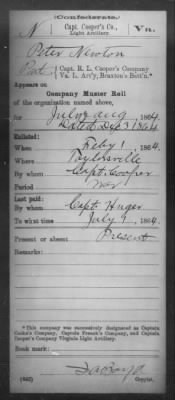 (Confederate.)
N Capt. Cooper's Co., Va.
Light Artillery.
Peter Newton
Pvt., Capt. R. L. Cooper's Company
Va. L. Art'y, Braxton's Batt'n.*
Appears on
Company Muster Roll
of the organization named above,
for July & Aug, 1864.
Dated Dec 3 1864
Enlisted:
When Feby 1 1864
Where Taylorsville
By whom Capt. Cooper
Period War
Last paid:
By whom Capt. Huger
To what time July 1 1864.
Present or absent Present
Remarks:
*This company was successively designated as Captain
Cooke's Company, Captain French's Company, and Captain
Cooper's Company Virginia Light Artillery.
Book mark:
(642)
Copyist.